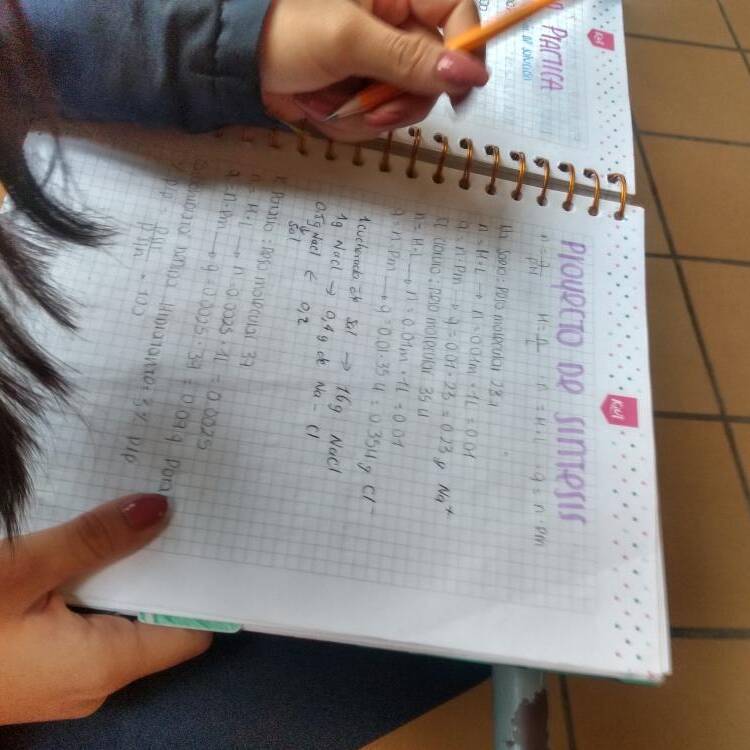 PRACTICA
KiM
PROYECTO DE SINTESIS
KiM
n = g/PM   M = n/L   n = M·L   g = n·Pm
Na Sodio: Peso molecular 23
n = M·L → n = 0.01m · 1L = 0.01
g = n·Pm → g = 0.01·23 = 0.23 g Na+
Cl Cloruro: Peso molecular 35.4
n = M·L → n = 0.01m · 1L = 0.01
g = n·Pm → g = 0.01·35.4 = 0.354g Cl-
1 cucharada de sal → 16g NaCl
1g NaCl → 0,4g de Na-Cl
0.5g NaCl ← 0,2
Sal
K Potasio: Peso molecular 39
n = M·L → n = 0.0025 · 1L = 0.0025
g = n·Pm → g = 0.0025·39 = 0.097g
3% P/P
% P/P = · 100